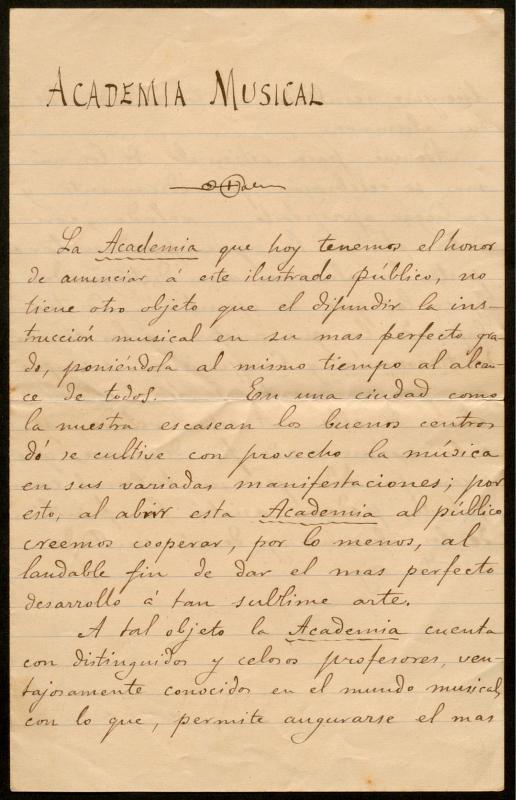 ACADEMIA MUSICAL
La Academia que hoy tenemos el honor
de anunciar á este ilustrado público, no
tiene otro objeto que el difundir la ins-
trucción musical en su mas perfecto gra-
do, poniéndola al mismo tiempo al alcan-
ce de todos. En una ciudad como
la nuestra escasean los buenos centros
dó se cultive con provecho la música
en sus variadas manifestaciones; por
esto, al abrir esta Academia al público
creemos cooperar, por lo menos, al
laudable fin de dar el mas perfecto
desarrollo á tan sublime arte.
A tal objeto la Academia cuenta
con distinguidos y celosos profesores, ven-
tajosamente conocidos en el mundo musical,
con lo que, permite augurarse el mas